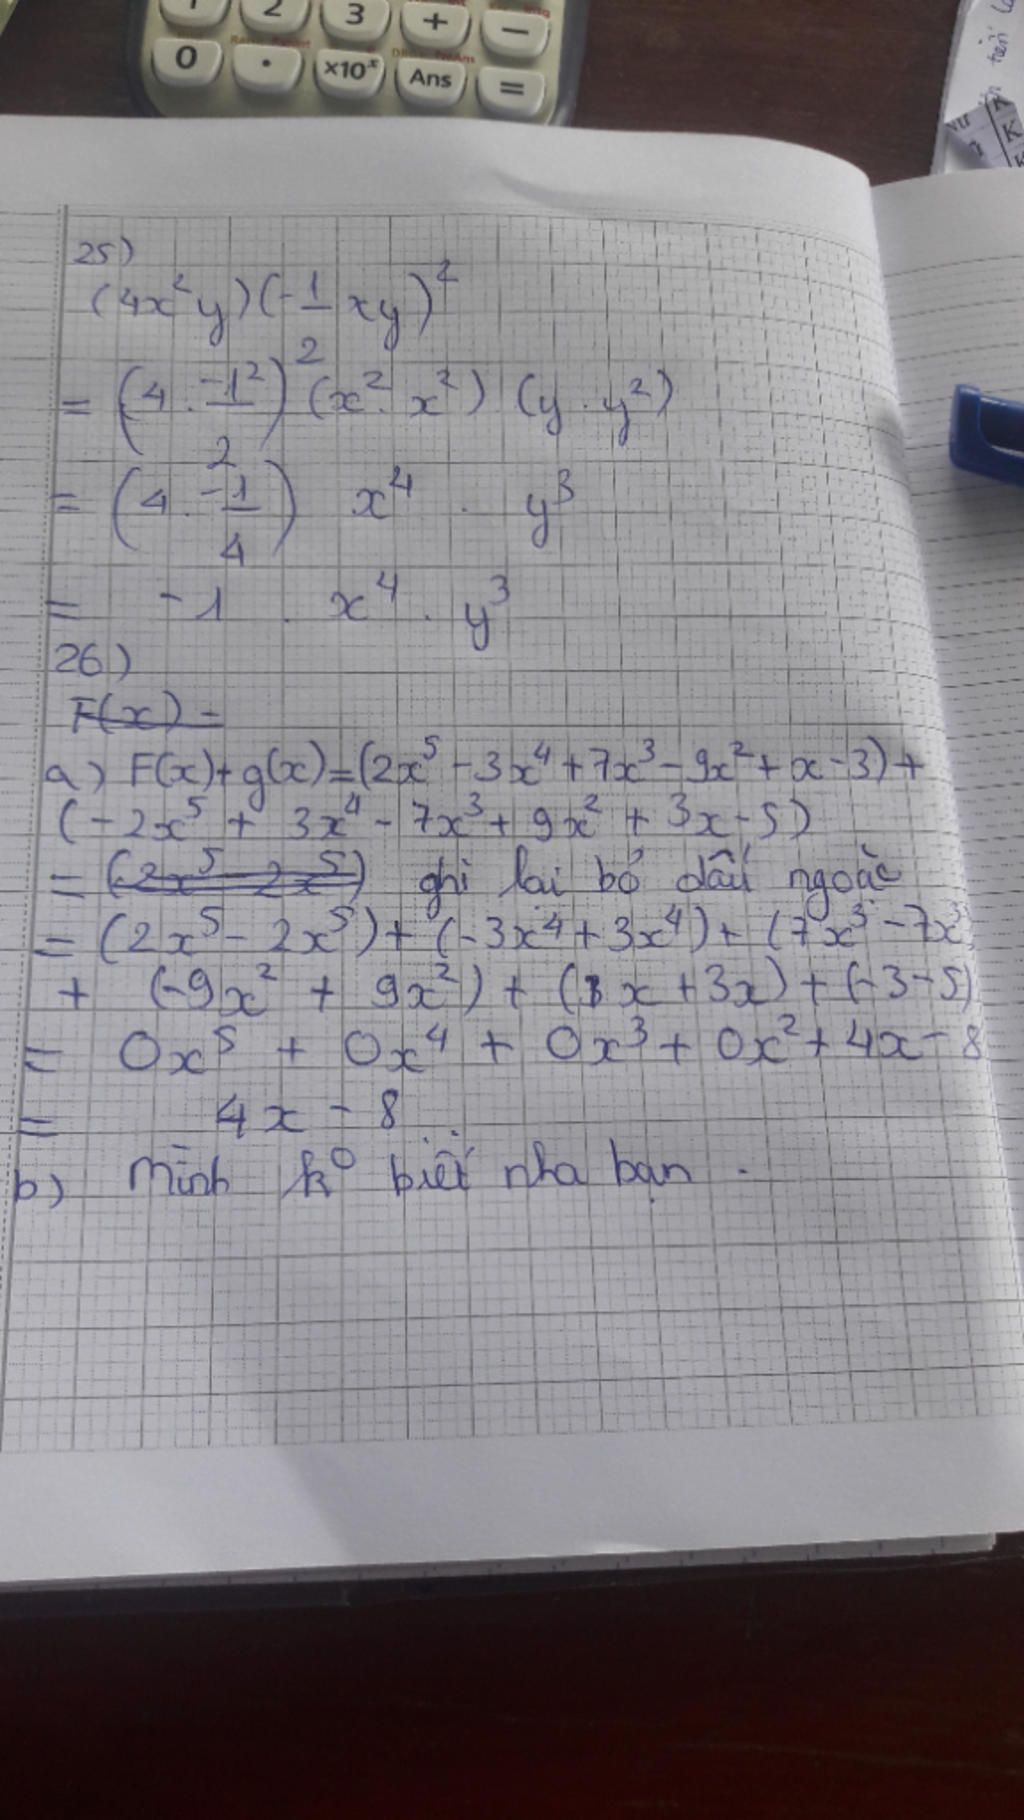 1 2 3 + -
0 . ×10ˣ Ans =
25)
(4x²y)(-1/2 xy)²
= (4 . -1²/2)² (x² . x²) (y . y²)
= (4 . -1/4) x⁴ . y³
= -1 . x⁴ . y³
26)
F(x) =
a) F(x)+g(x)=(2x⁵-3x⁴+7x³-9x²+x-3)+
(-2x⁵ + 3x⁴ - 7x³ + 9x² + 3x-5)
= (2x⁵ - 2x⁵) ghi lại bỏ dấu ngoặc
= (2x⁵-2x⁵)+(-3x⁴+3x⁴)+(7x³-7x³)
+ (-9x² + 9x²)+(1x+3x)+(-3-5)
= 0x⁵ + 0x⁴ + 0x³ + 0x² + 4x - 8
= 4x - 8
b) Mình k⁰ biết nha bạn .